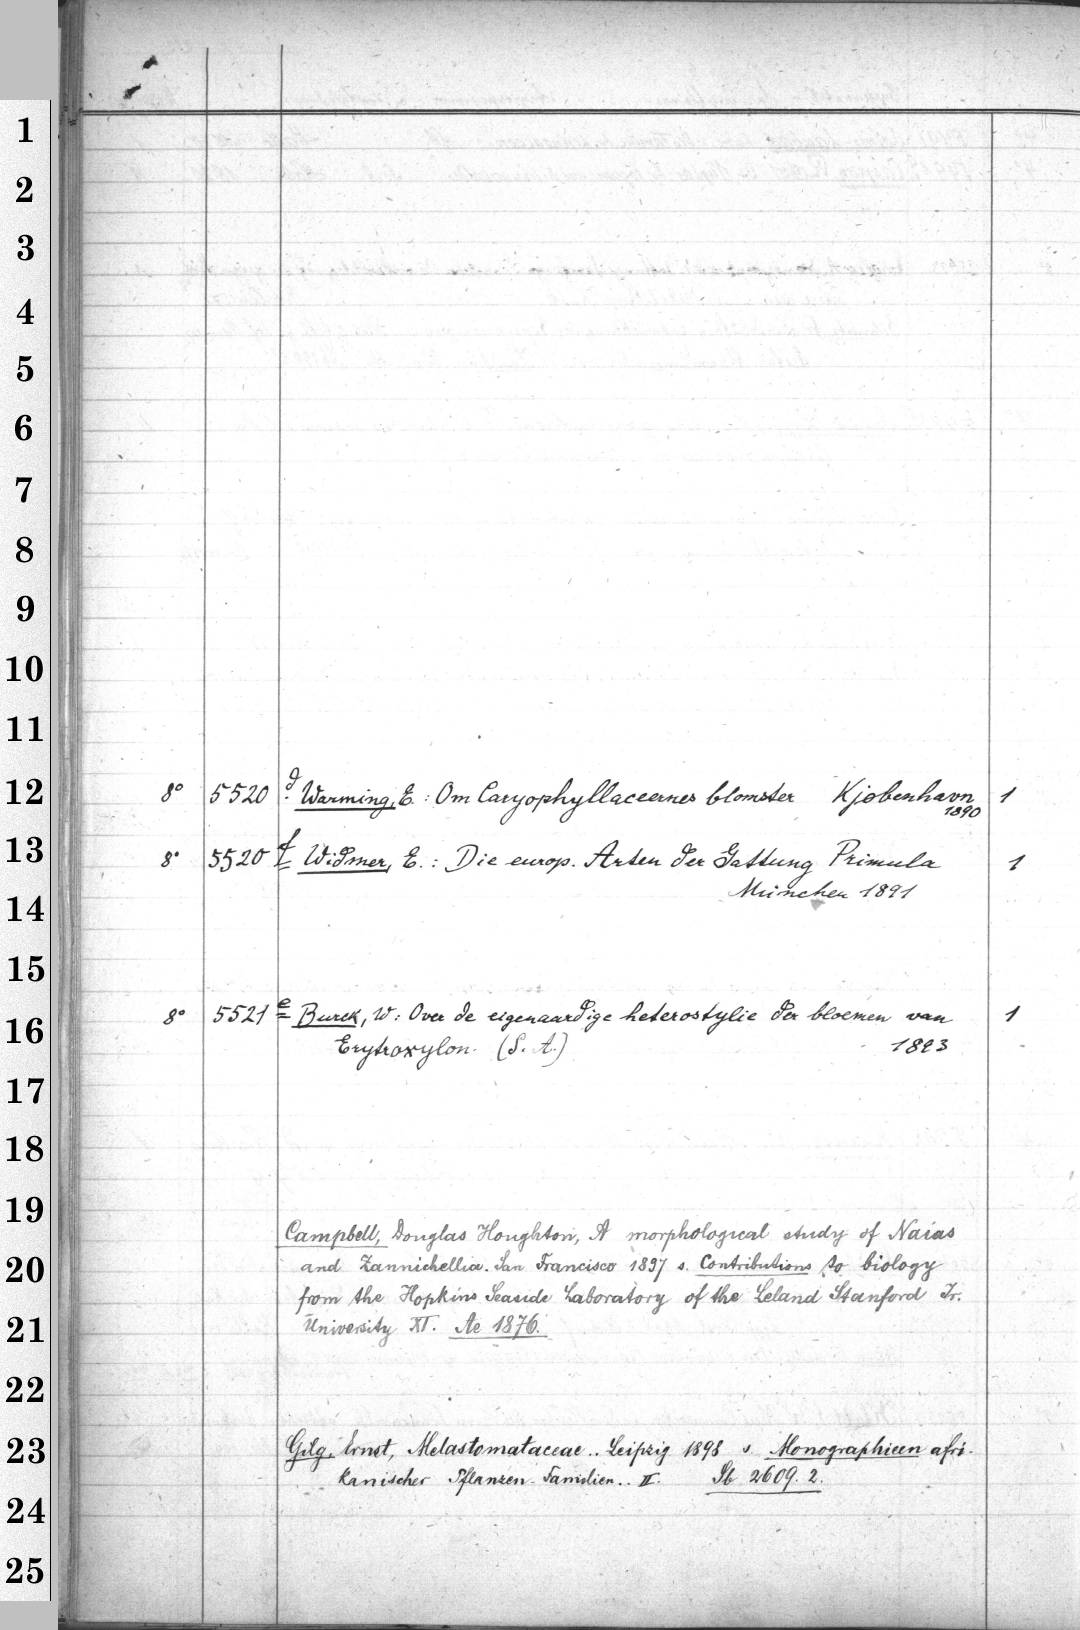 1
2
3
4
5
6
7
8
9
10
11
12
13
14
15
16
17
18
19
20
21
22
23
24
25
8° 5520 d. Warming, E.: Om Caryophyllaceernes blomster Kjøbenhavn 1
1890
8° 5520 f Widmer, E.: Die europ. Arten der Gattung Primula 1
München 1891
8° 5521 e Burck, W: Over de eigenaardige heterostylie der bloemen van 1
Erytroxylon. (S. A.) 1893
Campbell, Douglas Houghton, A morphological study of Naias
and Zannichellia. San Francisco 1897 s. Contributions to biology
from the Hopkins Seaside Laboratory of the Leland Stanford Jr.
University XI. Ae 1876.
Gilg, Ernst, Melastomataceae.. Leipzig 1898 s. Monographieen afri-
kanischer Pflanzen-Familien.. II. Sb 2609. 2.